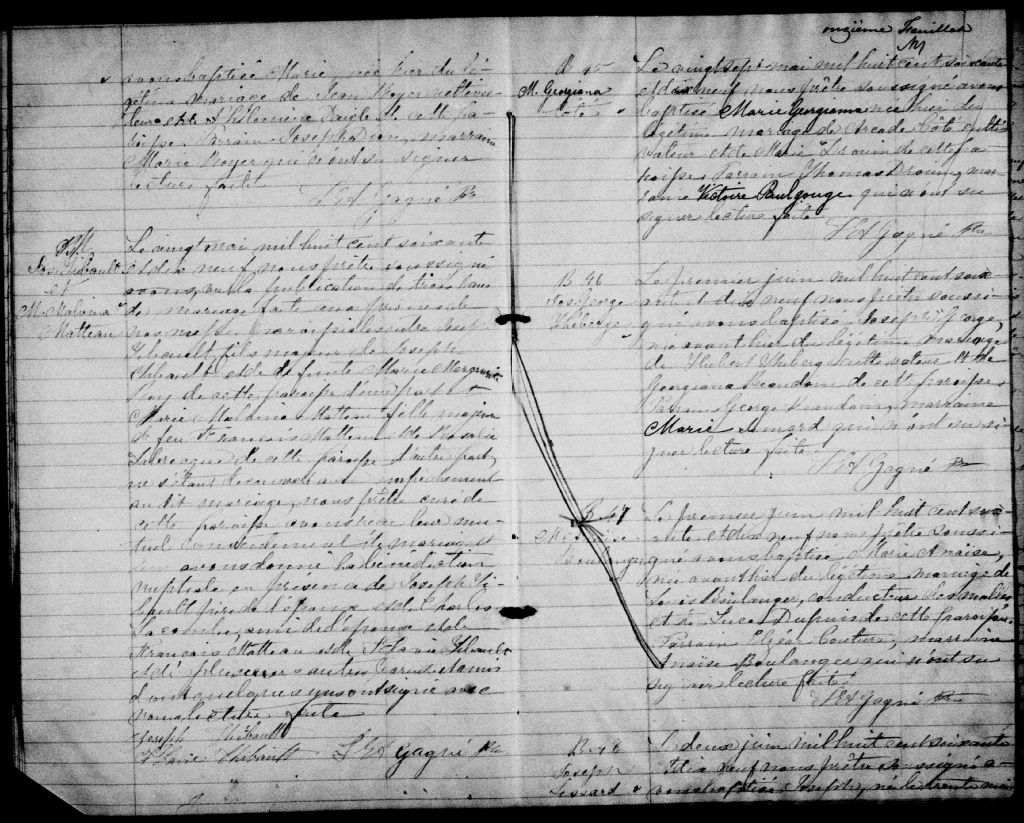 onzième Feuillet
avons baptisé Marie, née hier du lé
gitime mariage de Jean Noyer cultiva
teur et de Philomène de cette pa
roisse. Parrain Joseph Dion, marraine
Marie Noyer qui n'ont su signer
lecture faite.
L. A. Gagné Ptr
Jos. Thibault
et
M. Malvina
Matteau
Le vingt mai mil huit cent soixante
et dix neuf, nous prêtre soussigné
avons, vu la publication de trois bans
de mariage faite aux prônes de
nos messes paroissiales entre Joseph
Thibault, fils majeur de Joseph
Thibault et de défunte Marie Marguerite
Roy de cette paroisse d'une part et
Marie Malvina Matteau fille majeure
de feu François Matteau et de Rosalie
Larocque de cette paroisse d'autre part,
ne s'étant découvert aucun empêchement
au dit mariage, nous prêtre curé de
cette paroisse avons reçu leur mu
tuel consentement de mariage et
leur avons donné la bénédiction
nuptiale en présence de Joseph Thi
bault père de l'époux et de Charles
Lacombe, ami de l'épouse et de
François Matteau et de Thibault
et de plusieurs autres parents et amis
dont quelques uns ont signé avec
nous lecture faite
Joseph Thibault
Thibault L. A. Gagné Ptr
B 45
M. Georgiana
Côté
Le vingt sept mai mil huit cent soixante
et dix neuf nous prêtre soussigné avons
baptisé Marie Georgiana née hier du
légitime mariage de Arcade Côté culti
vateur et de Marie Drouin de cette pa
roisse. Parrain Thomas Drouin, mar
raine Victoire Paulgouge qui n'ont su
signer lecture faite.
L A Gagné Ptr
B 46
Jos. George
Théberge
Le premier juin mil huit cent soix
ante et dix neuf nous prêtre soussi
gné avons baptisé Joseph George,
né avant hier du légitime mariage
de Hubert Théberge cultivateur et de
Georgiana Beaudoin de cette paroisse.
Parrain George Beaudoin, marraine
Marie Simard qui n'ont su si
gner lecture faite.
L A Gagné Ptr
B 47
Boulanger
Le premier juin mil huit cent soix
ante et dix neuf nous prêtre soussi
gné avons baptisé Marie Anaise,
née avant hier du légitime mariage de
Louis Boulanger, conducteur des malles
et de Luce Dupuis de cette paroisse.
Parrain Elzéar Couture, marraine
Anaïse Boulanger qui n'ont su
signer lecture faite.
L A Gagné Ptr
B 48
Joseph
Lessard
Le deux juin mil huit cent soixante
et dix neuf nous prêtre soussigné a
vons baptisé Joseph, né le trente mai